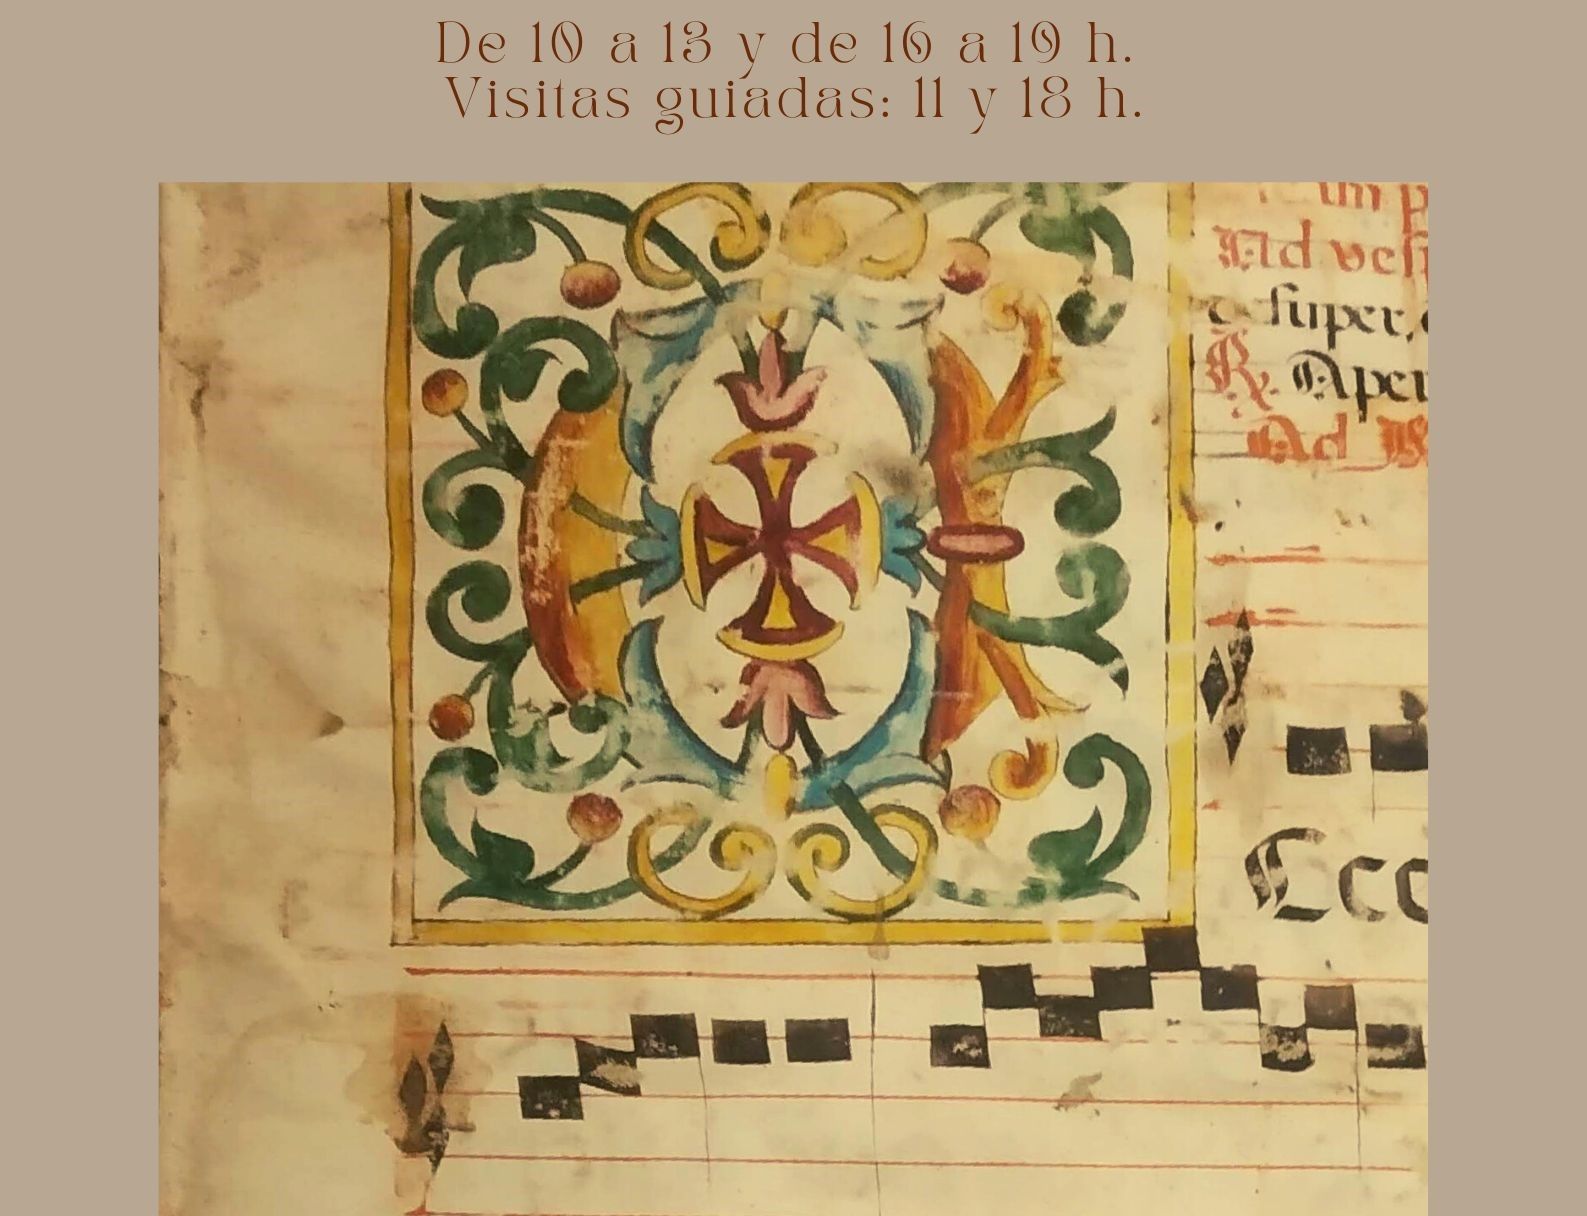 De 10 a 13 y de 16 a 19 h.
Visitas guiadas: 11 y 18 h.
Ad
super,
℟. Aper
Ad
Ecce